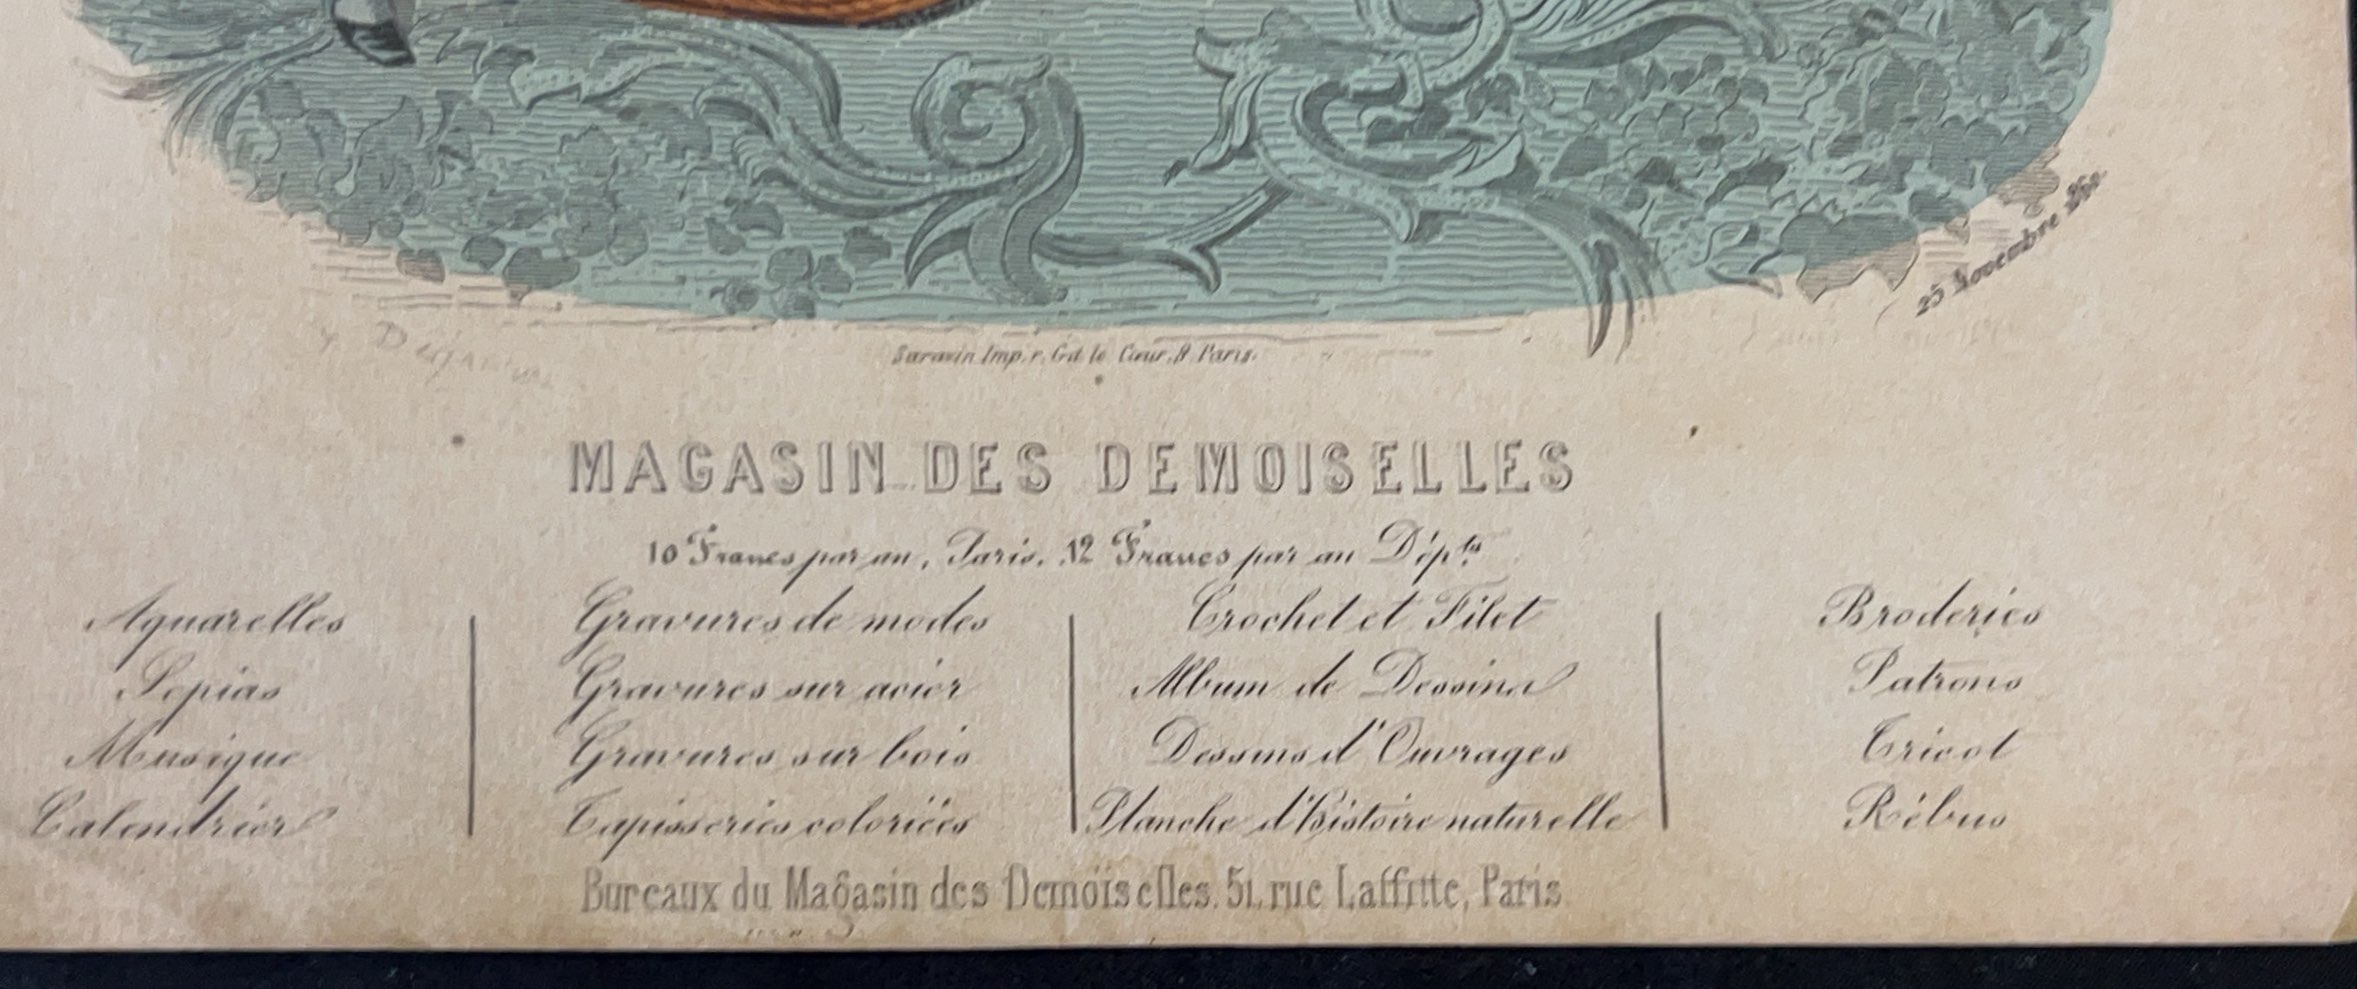 25 Novembre 1860.
Sarazin Imp. r. Gît le Cœur, 8 Paris.
MAGASIN DES DEMOISELLES
10 Francs par an, Paris. 12 Francs par an Dép.ts
Aquarelles
Sepias
Musique
Calendrier
Gravures de modes
Gravures sur acier
Gravures sur bois
Tapisseries coloriées
Crochet et Filet
Album de Dessins
Dessins d'Ouvrages
Planche d'histoire naturelle
Broderies
Patrons
Tricot
Rébus
Bureaux du Magasin des Demoiselles. 51, rue Laffitte, Paris